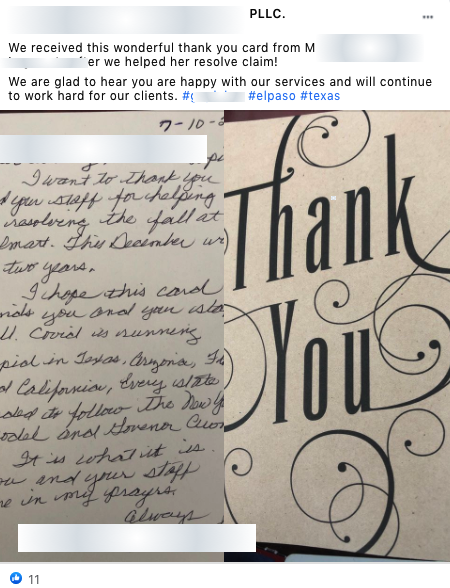 PLLC.
We received this wonderful thank you card from M
er we helped her resolve claim!
We are glad to hear you are happy with our services and will continue
to work hard for our clients. #g #elpaso #texas
7-10-2
I want to thank you
d your staff for helping
resolving the fall at
mart. This December w
two years.
I hope this card
nds you and your sta
ll. Covid is running
pid in Texas, Arizona, F
d California, Every state
ded to follow the New Y
odel and Govenor Cuom
It is what it is.
ou and your staff
e in my prayers.
Always
Thank
You
11